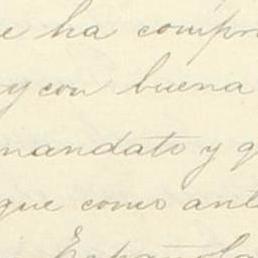 e ha compr
y con buena
mandato y q
que como ant
Española